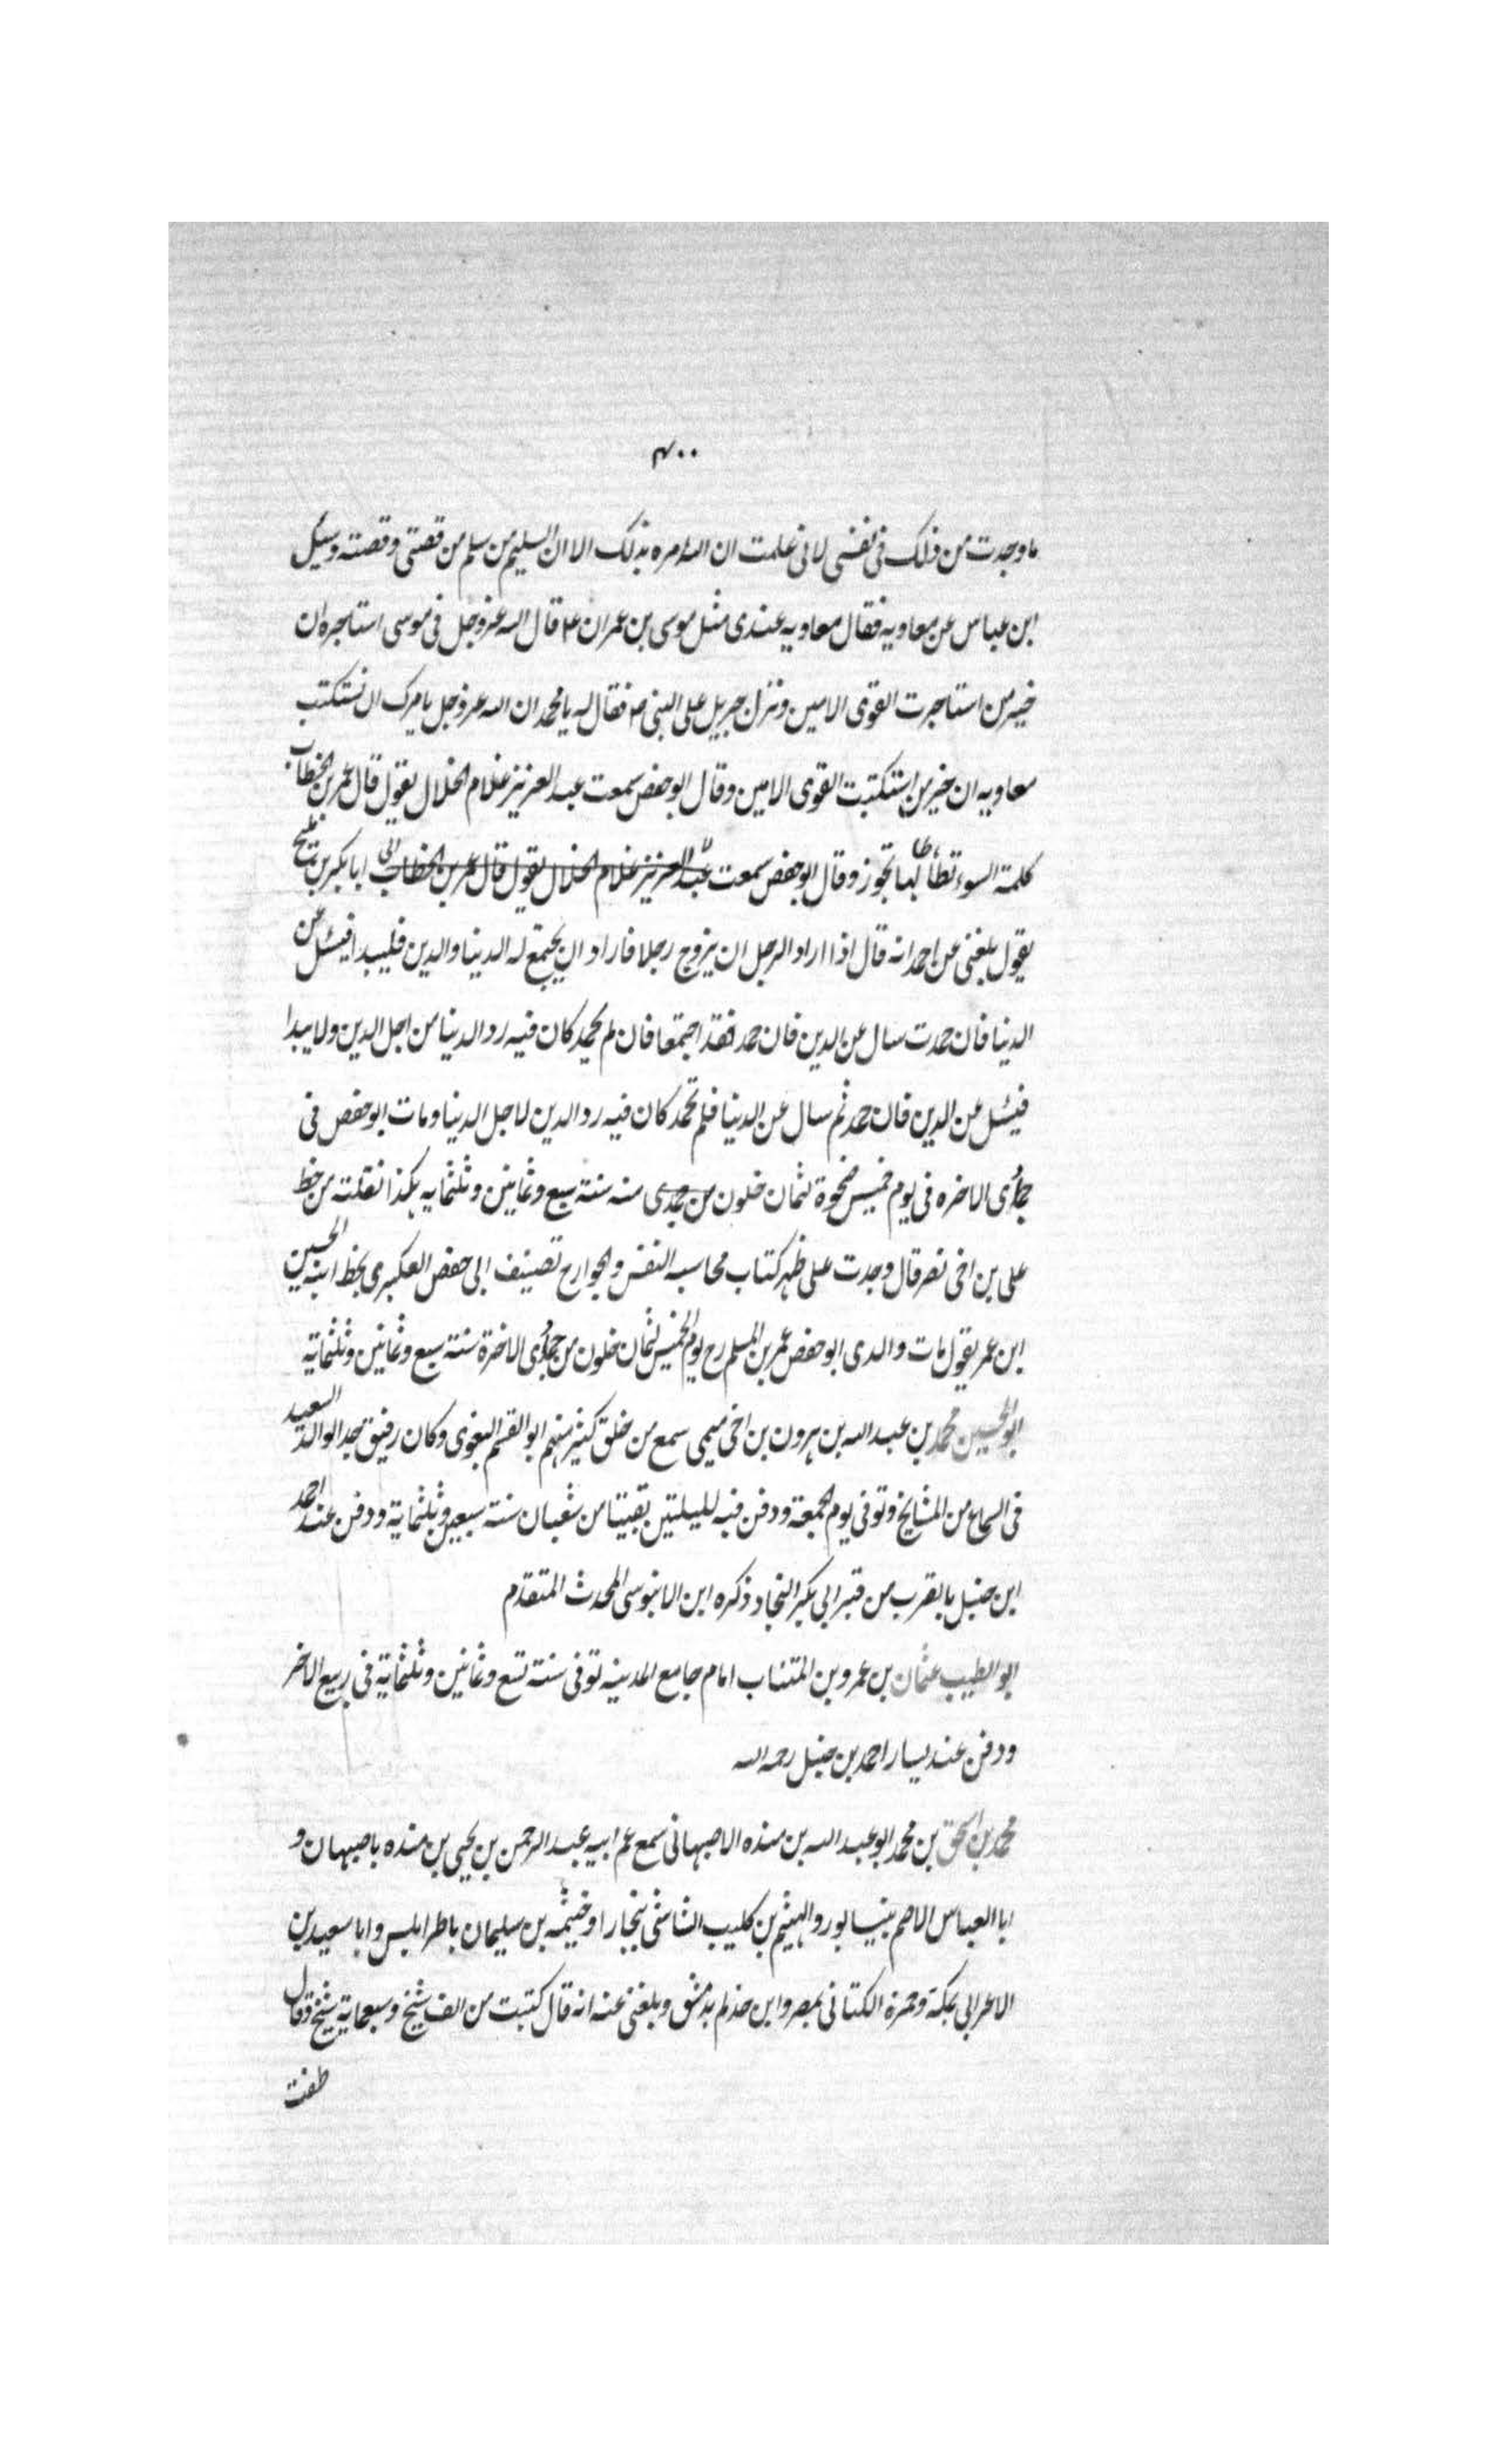 ۴۰۰
ما وجدت من ذلك فى نفسى لانى علمت ان الله امره بذلك الا ان السليم من سلم من قصتى وقصته وسئل
ابن عباس عن معاويه فقال معاويه عندى مثل موسى بن عمران ع قال الله عزوجل فى موسى استاجره ان
خير من استاجرت القوى الامين ونزل جبريل على النبى ص فقال له يا محمد ان الله عزوجل يامرك ان تستكتب
معاويه ان خير من استكتبت القوى الامين وقال ابو حفص سمعت عبد العزيز غلام الخلال يقول قال عمر بن الخطاب
كلمة السوء تطأطأ لها تجوز وقال ابو حفص سمعت عبد العزيز غلام الخلال يقول قال عمر بن الخطاب ابا بكر بن مليح
يقول بلغنى عن احمد انه قال اذا اراد الرجل ان يزوج رجلا فاراد ان يجتمع له الدنيا والدين فليبدا فيسئل عن
الدنيا فان حمدت سال عن الدين فان حمد فقد اجتمعا فان لم يحمد كان فيه رد الدنيا من اجل الدين ولا يبدا
فيسئل عن الدين فان حمد ثم سال عن الدنيا فلم تحمد كان فيه رد الدين لاجل الدنيا ومات ابو حفص فى
جمادى الاخره فى يوم خميس ضحوة لثمان خلون من جمدى منه سنة سبع وثمانين وثلثمايه هكذا نقلته من خط
على بن اخى نصر قال وجدت على ظهر كتاب محاسبه النفس والجوارح تصنيف ابى حفص العكبرى بخط ابنه الحسين
ابن عمر يقول مات والدى ابو حفص عمر بن المسلم رح يوم الخميس لثمان خلون من جمادى الاخرة سنة سبع وثمانين وثلثماية
ابو الحسين محمد بن عبد الله بن هرون بن اخى ميمى سمع من خلق كثير منهم ابو القسم البغوى وكان رفيق جد الوالد السعيد
فى السماع من المشايخ وتوفى يوم الجمعة ودفن فيه لليلتين بقيتا من شعبان سنة سبعين وثلثماية ودفن عند احمد
ابن حنبل بالقرب من قبر ابى بكر النجاد ذكره ابن الابنوسى المحدث المتقدم
ابو الطيب عثمان بن عمرو بن المنتاب امام جامع المدينه توفى سنة تسع وثمانين وثلثماية فى ربيع الاخر
ودفن عند يسار احمد بن حنبل رحمه الله
محمد بن اسحق بن محمد ابو عبد الله بن منده الاصبهانى سمع عم ابيه عبد الرحمن بن يحيى بن منده باصبهان و
ابا العباس الاصم بنيسابور والهيثم بن كليب الشاشى ببخارا وخيثمه بن سليمان باطرابلس وابا سعيد بن
الاعرابى بمكة وحمزة الكتانى بمصر وابن حذلم بدمشق وبلغنى عنه انه قال كتبت من الف شيخ وسبعماية شيخ وقال
طفت